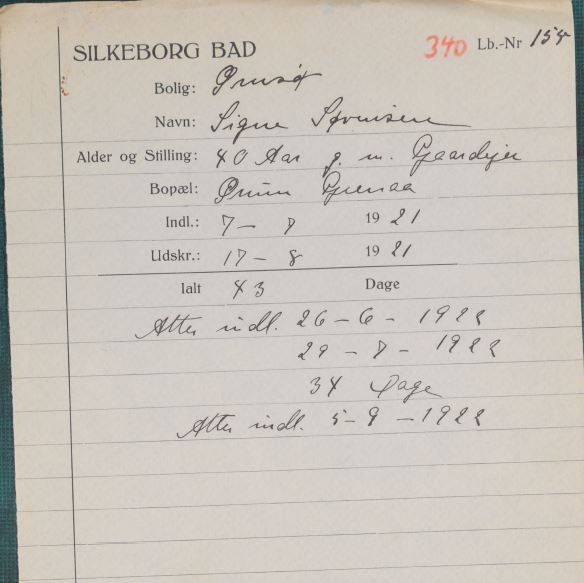 SILKEBORG BAD
340 Lb.-Nr 154
Bolig: Ørnsø
Navn: Signe Sørensen
Alder og Stilling: 40 Aar g. m. Gaardejer
Bopæl: Ørum Grenaa
Indl.: 7 - 7 1921
Udskr.: 17 - 8 1921
Ialt 43 Dage
Atter indl. 26 - 6 - 1922
29 - 7 - 1922
34 Dage
Atter indl. 5 - 9 - 1922